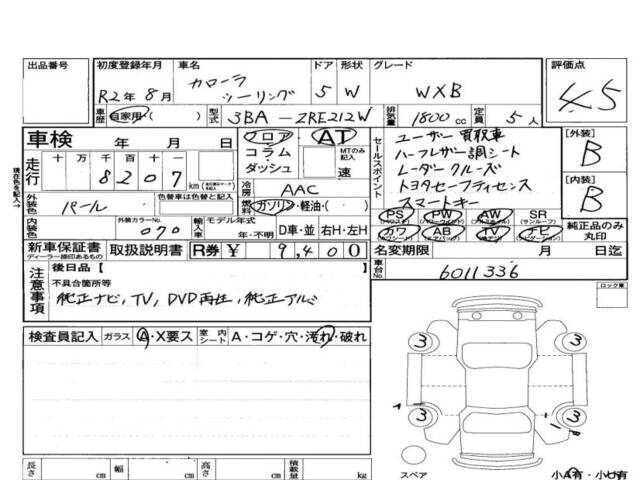 出品番号
初度登録年月 車名 ドア 形状 グレード 評価点
R2年8月 カローラ ツーリング 5 W WXB 4.5
車歴 自家用( ) 型式 3BA-ZRE212W 排気量 1800cc 定員 5人
車検 年 月 フロア AT
コラム MTのみ記入
ダッシュ 速
走行 十 万 千 百 十 一
8 2 0 7 km
現在色を記入→
冷房 AAC
外装色 パール 色替車は色替と記入
燃料 ガソリン・軽油・( )
内装色 外装カラーNo. 070 輸入車 モデル年式 年・不明 D車・並 右H・左H
セールスポイント
ユーザー買取車
ハーフレザー調シート
レーダークルーズ
トヨタセーフティセンス
スマートキー
[外装] B
[内装] B
PS PW AW SR
(パワステ) (パワーウインド) (アルミホイール) (サンルーフ)
カワ AB TV ナビ
(エアバッグ) (テレビ) (ナビゲーション)
純正品のみ丸印
新車保証書 取扱説明書 R券 ¥ 9,400
ディーラー捺印あるもの
名変期限 月 日迄
車台No. 6011336
注意事項
後日品【
不具合箇所等
純正ナビ, TV, DVD再生, 純正アルミ
ロック車
検査員記入 ガラス A・X要ス 室内シート A・コゲ・穴・汚れ・破れ
3 3
A
3 3
1 B
スペア 小A有・小U有
長さ cm 幅 cm 高さ cm 積載量 kg